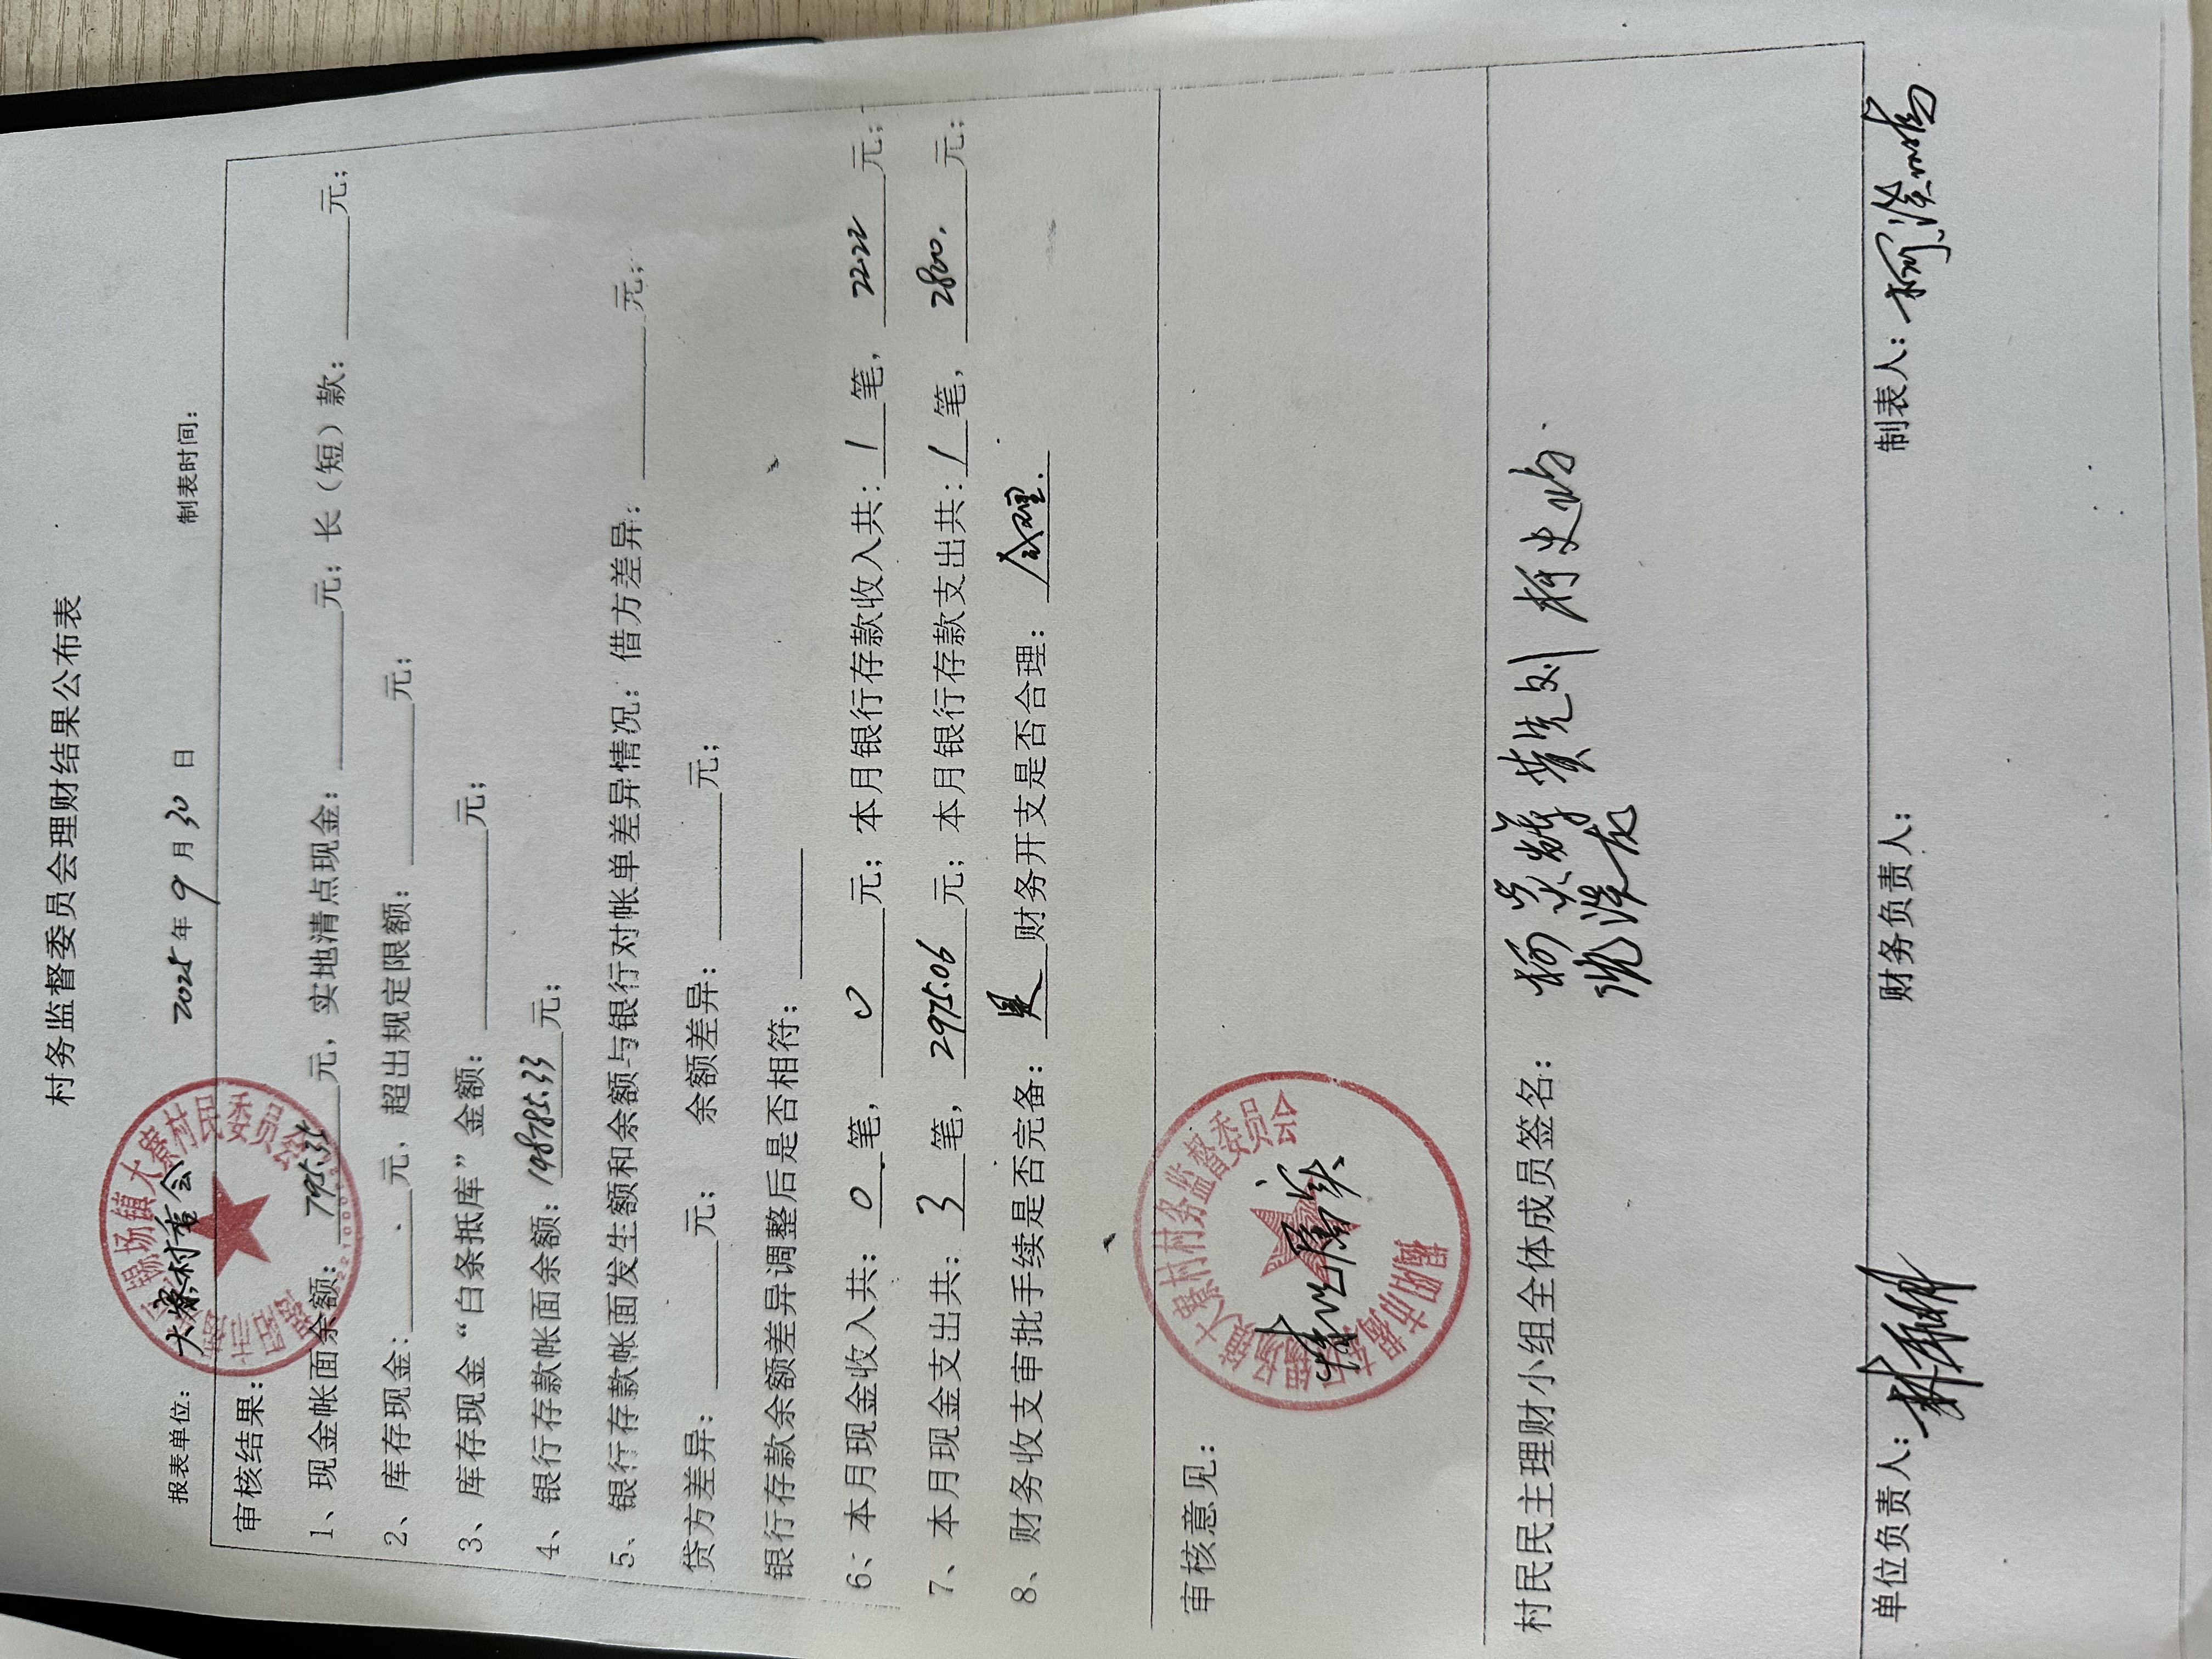 村务监督委员会理财结果公布表
报表单位：大寮村委会 2025年9月30日 制表时间：
审核结果：
1、现金帐面余额：795.35元，实地清点现金：______元；长（短）款：______元；
2、库存现金：______元，超出规定限额：______元；
3、库存现金“白条抵库”金额：______元；
4、银行存款帐面余额：198785.33元；
5、银行存款帐面发生额和余额与银行对帐单差异情况：借方差异：______元；
贷方差异：______元； 余额差异：______元；
银行存款余额差异调整后是否相符：______
6、本月现金收入共：0笔，0元；本月银行存款收入共：1笔，22.22元；
7、本月现金支出共：3笔，2975.06元；本月银行存款支出共：1笔，2800.元；
8、财务收支审批手续是否完备：是 财务开支是否合理：合理.
审核意见：
村民民主理财小组全体成员签名：
单位负责人： 财务负责人： 制表人：